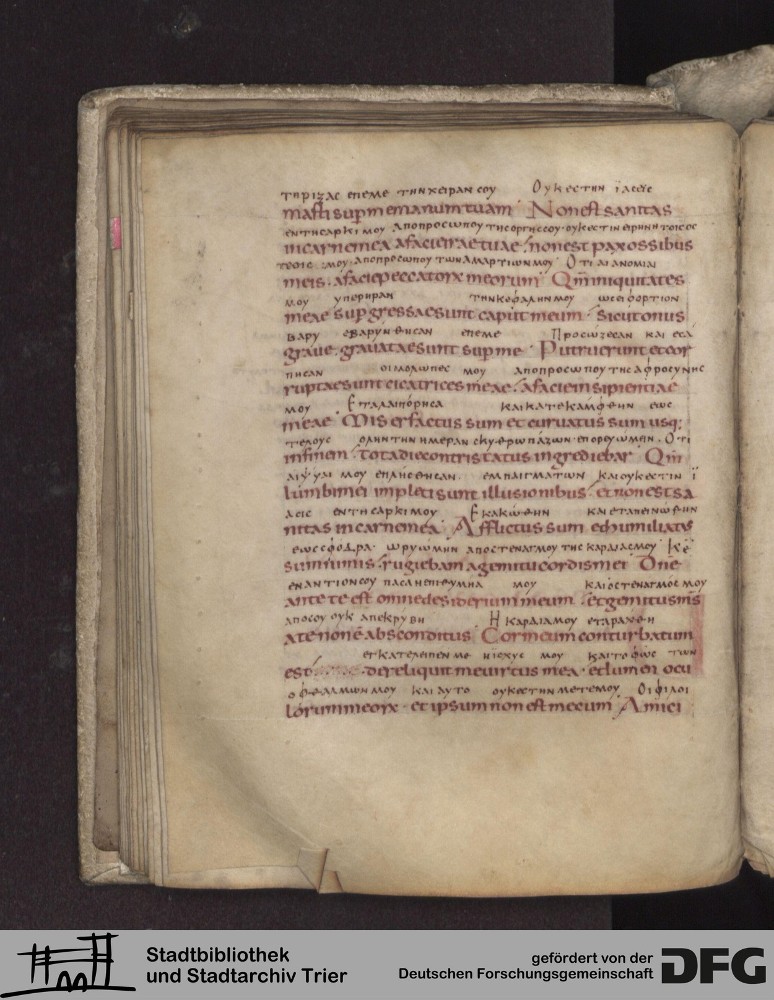 τηριζας επεμε τηνχειραν σου Ουκεστιν ϊασεις
masti supm emanum tuam Non est sanitas
εντησαρκι μου αποπροσωπου τησοργησσου ουκεστιν ειρηνη τοισοσ
incarnemea afacieiraetuae : nonest pax ossibus
τεοις μου αποπροσωπου τωναμαρτιωνμου Οτι αι ανομιαι
meis . afaciepeccatorx meorum Qm iniquitates
μου υπερηραν τηνκεφαληνμου ωσειφορτιον
meae supgressaesunt caput meum : sicutonus
βαρυ εβαρυνθησαν επεμε Προσωζεσαν και εσα
graue . grauataesunt supme . Putruerunt etcor
πησαν οιμολωπες μου αποπροσωπου της αφροσυνης
ruptaesunt cicatrices meae . afacieinsipientiae
μου Εταλαιπορησα και κατεκαμφθην εως
meae Miser factus sum et curuatus sum usq;
τελους οληντην ημεραν σκυθρωπαζων επορευωμην . Οτι
infinem : totadiecontristatus ingrediebar Qm
αιψυαι μου επλησθησαν εμπαιγματων και ουκεστιν ϊ
lumbimei impletisunt illusionibus . etnonestsa
ασις εντησαρκι μου Εκακωθην και εταπεινωθην
nitas incarnemea . Afflictus sum ethumiliatus
εως σφοδρα . ωρυωμην αποστεναγμου της καρδιας μου . Κε
sumnimis . rugiebam agemitucordismei Dne
εναντιονσου πασαηεπιθυμηα μου και οστεναγμος μου
ante te est omnedesiderium meum . etgemitusms
αποσου ουκ απεκρυβη Η καρδιαμου εταραχθη
atenonē absconditus Cormeumconturbatum
εγκατελειπεν με ηισχυς μου και το φως των
est dereliquit meuirtus mea . etlumen ocu
οφθαλμων μου και αυτο ουκεστιν μετεμου Οι φιλοι
lorummeorx . et ipsumnon est mecum Amici
Stadtbibliothek
und Stadtarchiv Trier
gefördert von der
Deutschen Forschungsgemeinschaft
DFG